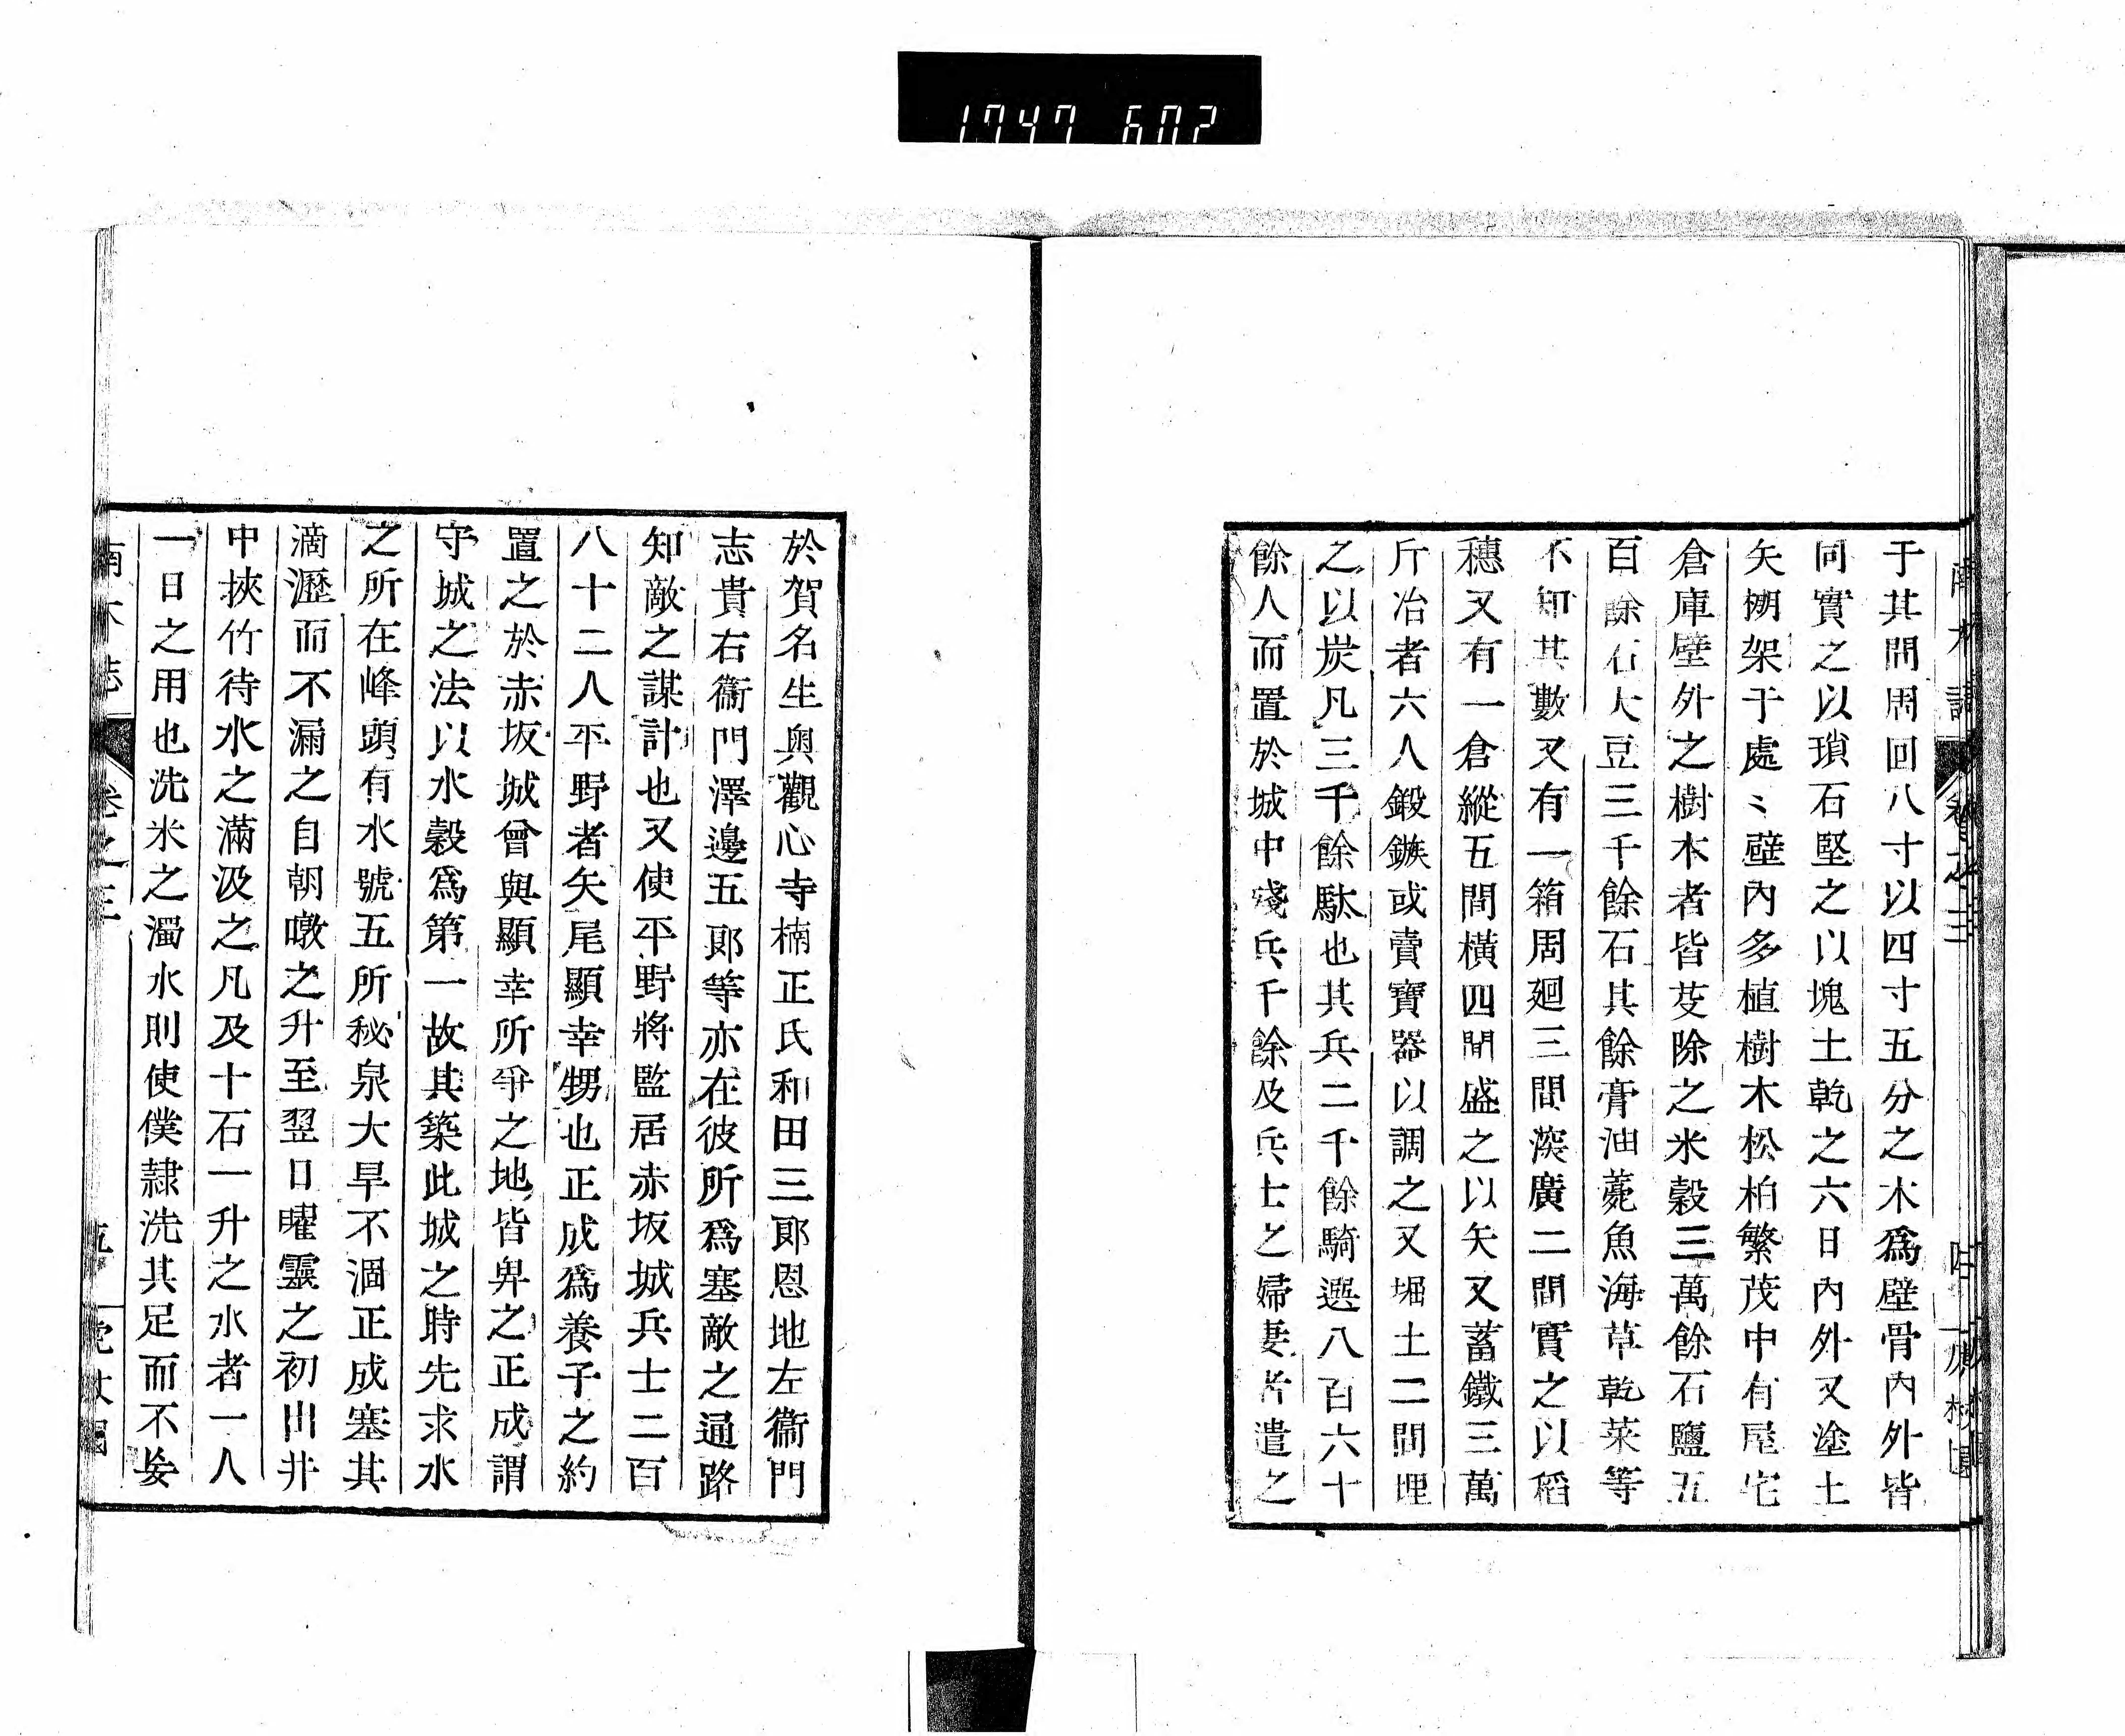 1747 602
于其間周回八寸以四寸五分之木爲壁骨内外皆
同實之以瑣石堅之以塊土乾之六日内外又塗土
矢挾架于處〻壁内多植樹木松柏繁茂中有屋宅
倉庫壁外之樹木者皆芟除之米穀三萬餘石鹽五
百餘石大豆三千餘石其餘膏油薨魚海草乾菜等
不知其數又有一箱周廻三間深廣二間實之以稻
穗又有一倉縱五間橫四間盛之以矢又蓄鐵三萬
斤冶者六人鍛鏃或賣寶器以調之又堀土二間埋
之以炭凡三千餘駄也其兵二千餘騎選八百六十
餘人而置於城中殘兵千餘及兵士之婦妻者遣之
於賀名生與觀心寺楠正氏和田三郎恩地左衞門
志貴右衞門澤邊五郎等亦在彼所爲塞敵之通路
知敵之謀計也又使平野將監居赤坂城兵士二百
八十二人平野者矢尾顯幸甥也正成爲養子之約
置之於赤坂城曾與顯幸所爭之地皆畀之正成謂
守城之法以水穀爲第一故其築此城之時先求水
之所在峰頭有水號五所秘泉大旱不涸正成塞其
滴瀝而不漏之自朝暾之升至翌日曜靈之初出井
中挾竹待水之滿汲之凡及十石一升之水者一人
一日之用也洗米之濁水則使僕隷洗其足而不妄
卷之三